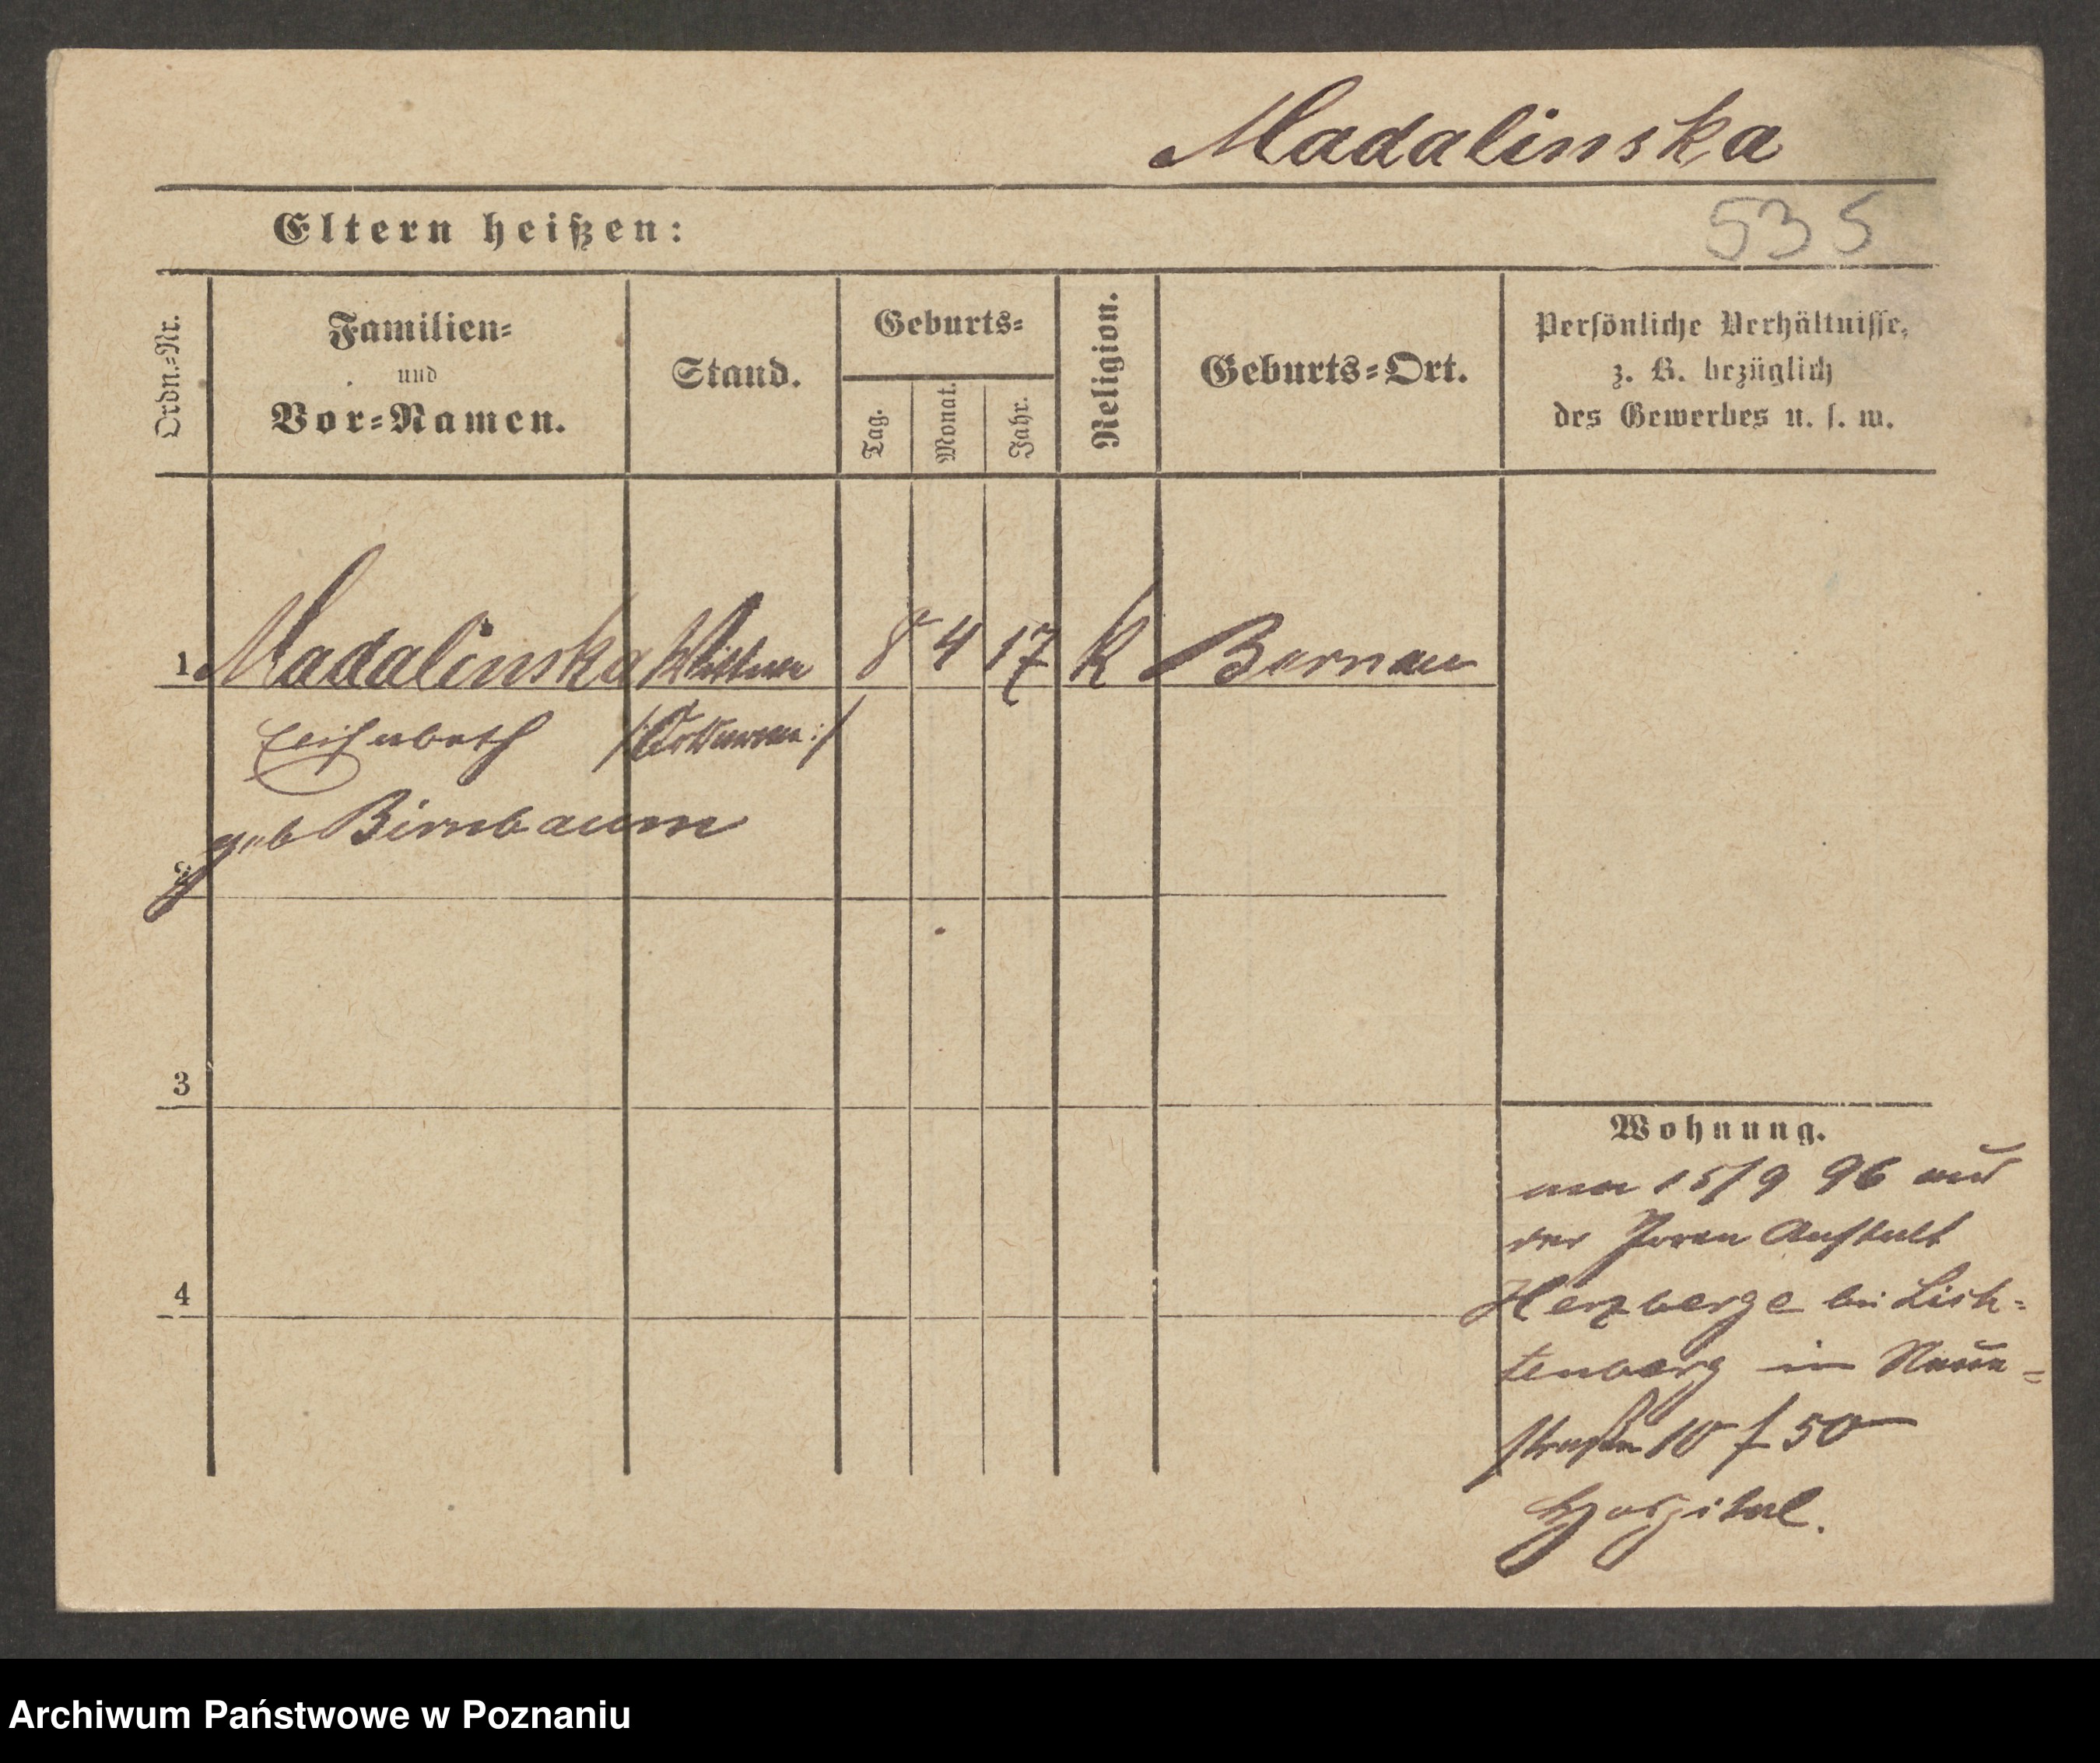 Madalinska
Eltern heißen:
535
Ordn.=Nr.
Familien=
und
Vor=Namen.
Stand.
Geburts=
Tag.
Monat.
Jahr.
Religion.
Geburts=Ort.
Persönliche Verhältnisse,
z. B. bezüglich
des Gewerbes u. s. w.
1 Madalinska Wittwe 8 4 17 K Bernau
Elisabeth
geb Birnbaum
2
3
4
Wohnung.
am 15/9 96 aus
der Irren Anstalt
Herzberge bei Lich=
tenberg in Neue=
straße 10 f 50
Hospital.
Archiwum Państwowe w Poznaniu